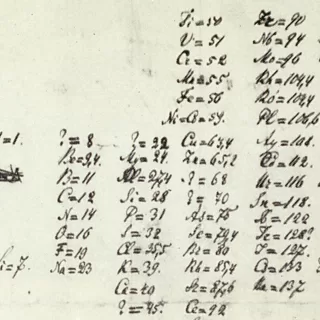 Ti=50 Zr=90
V=51 Nb=94
Cr=52 Mo=96
Mn=55 Rh=104,4
Fe=56 Ru=104,4
Ni=Co=59. Pl=106,6
=1. ?=8 ?=22 Cu=63,4 Ag=108
Be=9,4 Mg=24 Zn=65,2 Cd=112
B=11 Al=27,4 ?=68 Ur=116
C=12 Si=28 ?=70 Sn=118.
N=14 P=31 As=75 Sb=122
O=16 S=32 Se=79,4 Te=128?
F=19 Cl=35,5 Br=80 J=127.
i=7. Na=23 K=39. Rb=85,4 Cs=133
Ca=40 Sr=87,6 Ba=137
?=45. Ce=92